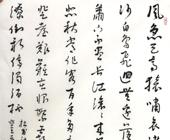 風急天高猿嘯哀
沙白鳥飛迴無邊落
蕭下不盡長江滾
悲秋常作客百年
登臺艱難苦恨繁
潦倒新停濁酒杯